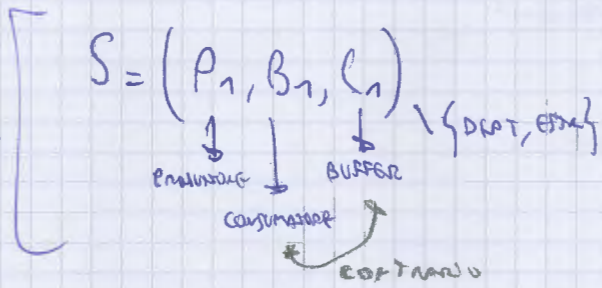 S = (P1, B1, C1) \ {DEPT, ESTR}
PRODUTTORE BUFFER
CONSUMATORE
CONTRARIO